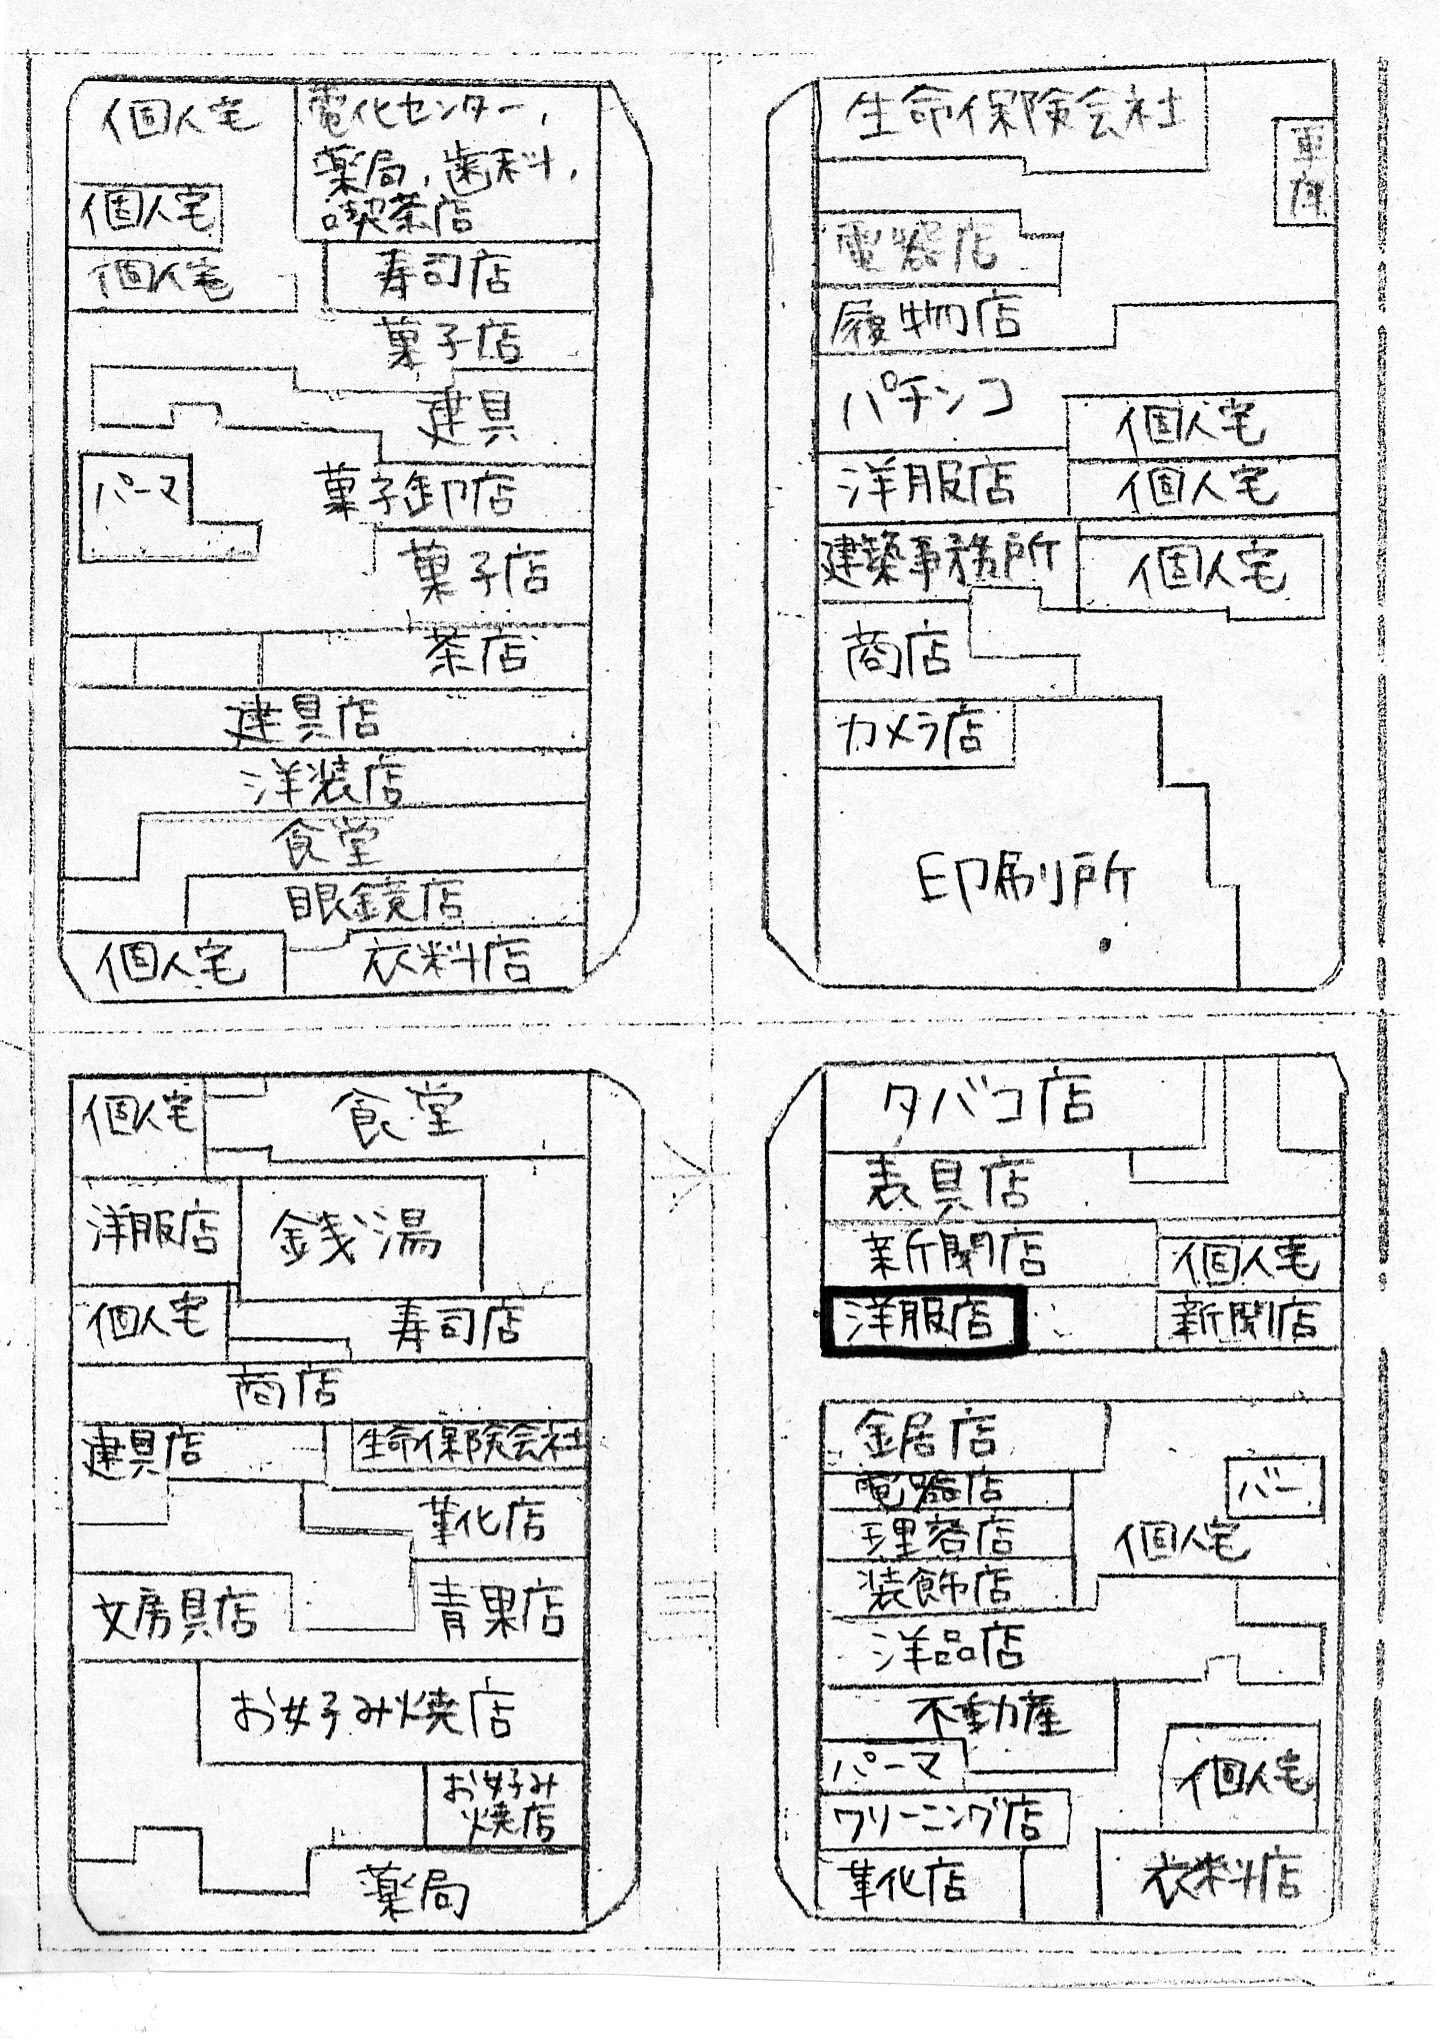 個人宅
電化センター,
薬局,歯科,
喫茶店
個人宅
個人宅
寿司店
菓子店
建具
パーマ
菓子卸店
菓子店
茶店
建具店
洋装店
食堂
眼鏡店
個人宅
衣料店
生命保険会社
車庫
電器店
履物店
パチンコ
個人宅
洋服店
個人宅
建築事務所
個人宅
商店
カメラ店
印刷所
個人宅
食堂
洋服店
銭湯
個人宅
寿司店
商店
建具店
生命保険会社
革化店
文房具店
青果店
お好み焼店
お好み
焼店
薬局
タバコ店
表具店
新聞店
個人宅
洋服店
新聞店
鋸店
電器店
バー
理容店
個人宅
装飾店
洋品店
不動産
パーマ
個人宅
クリーニング店
革化店
衣料店